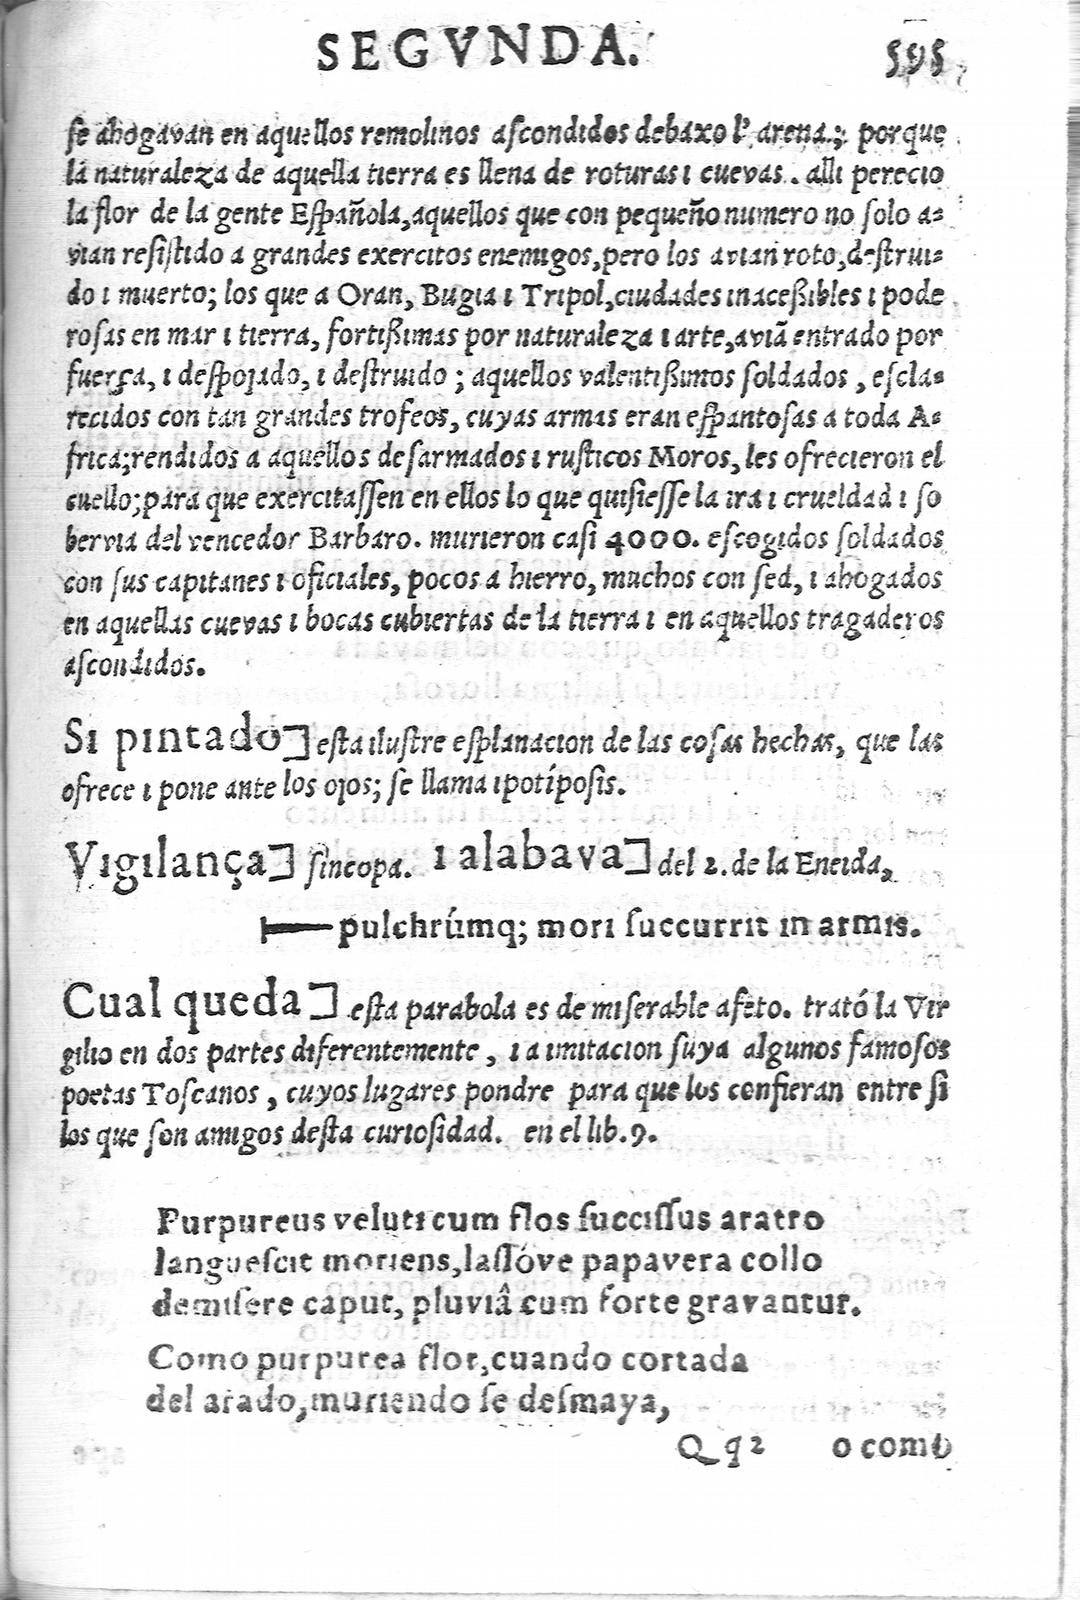 SEGVNDA. 595
se ahogavan en aquellos remolinos ascondidos debaxo l' arena.; porque
la naturaleza de aquella tierra es llena de roturas ı cuevas. alli perecio
la flor de la gente Española, aquellos que con pequeño numero no solo a-
vian resistido a grandes exercitos enemigos, pero los avian roto, destrui-
do ı muerto; los que a Oran, Bugia ı Tripol, ciudades inacessibles ı pode
rosas en mar ı tierra, fortissimas por naturaleza ı arte, aviã entrado por
fuerça, ı despojado, ı destruido; aquellos valentissimos soldados, escla-
recidos con tan grandes trofeos, cuyas armas eran espantosas a toda A-
frica; rendidos a aquellos desarmados ı rusticos Moros, les ofrecieron el
cuello; para que exercitassen en ellos lo que quisiesse la ira ı crueldad ı so
bervia del vencedor Barbaro. murieron casi 4000. escogidos soldados
con sus capitanes ı oficiales, pocos a hierro, muchos con sed, ı ahogados
en aquellas cuevas ı bocas cubiertas de la tierra ı en aquellos tragaderos
ascondidos.
Si pintado] esta ilustre esplanacion de las cosas hechas, que las
ofrece ı pone ante los ojos; se llama ipotíposis.
Vigilança] sincopa. ı alabava] del 2. de la Eneida,
— pulchrúmq; mori succurrit in armis.
Cual queda] esta parabola es de miserable afeto. trató la Vir
gilio en dos partes diferentemente, ı a imitacion suya algunos famosos
poetas Toscanos, cuyos lugares pondre para que los confieran entre si
los que son amigos desta curiosidad. en el lib. 9.
Purpureus veluti cum flos succissus aratro
languescit moriens, lassóve papavera collo
demisere caput, pluviâ cum forte gravantur.
Como purpurea flor, cuando cortada
del arado, muriendo se desmaya,
Qq2 o como